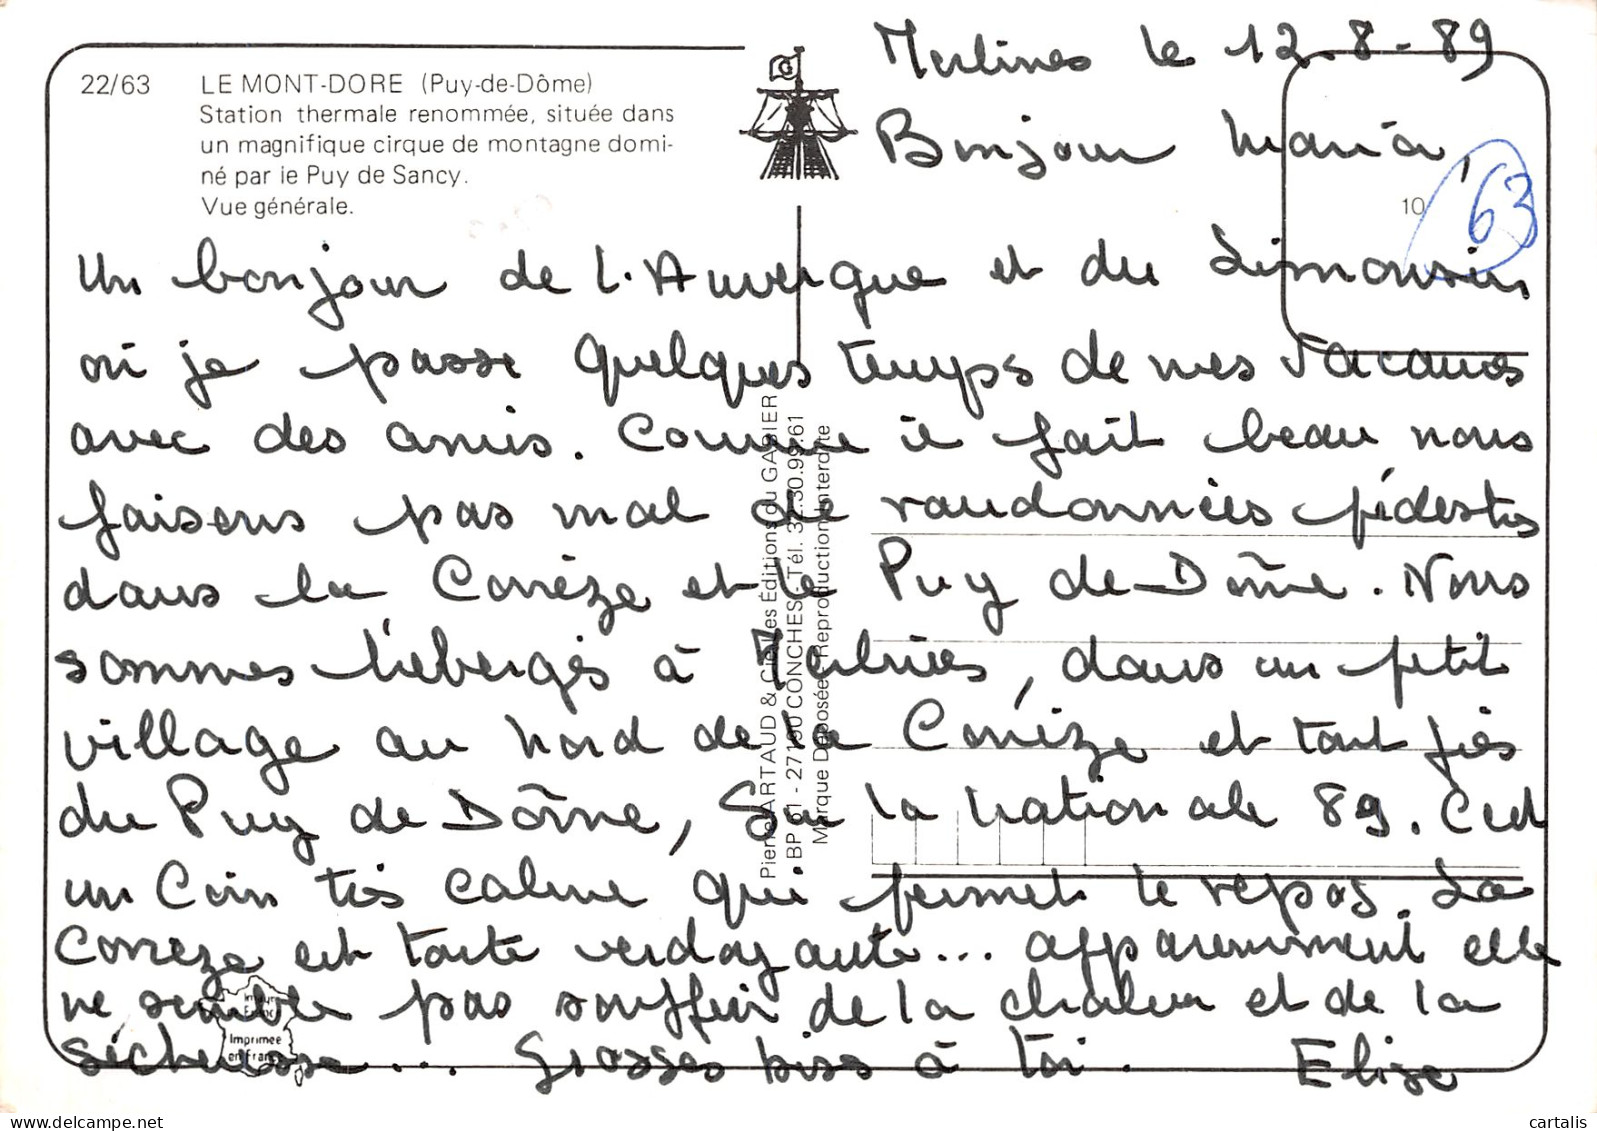 22/63 LE MONT-DORE (Puy-de-Dôme)
Station thermale renommée, située dans
un magnifique cirque de montagne domi-
né par le Puy de Sancy.
Vue générale.
Merlines le 12-8-89
Bonjour Maria,
10
63
Un bonjour de l'Auvergne et du Limousin
où je passe quelques temps de mes vacances
avec des amis. Comme il fait beau nous
faisons pas mal de randonnées pédestres
dans la Corrèze et le Puy de Dôme. Nous
sommes hébergés à Merlines, dans un petit
village au nord de la Corrèze et tout près
du Puy de Dôme, sur la nationale 89. C'est
un coin très calme qui permet le repos. La
Corrèze est toute verdoyante... apparemment elle
ne semble pas souffrir de la chaleur et de la
sécheresse... Grosses bises à toi. Elise
Pierre ARTAUD & Cie Les Éditions du GABIER
BP 61 - 27190 CONCHES Tél. 32.30.99.61
Marque Déposée - Reproduction Interdite
Imprimée
en France
cartalis
www.delcampe.net